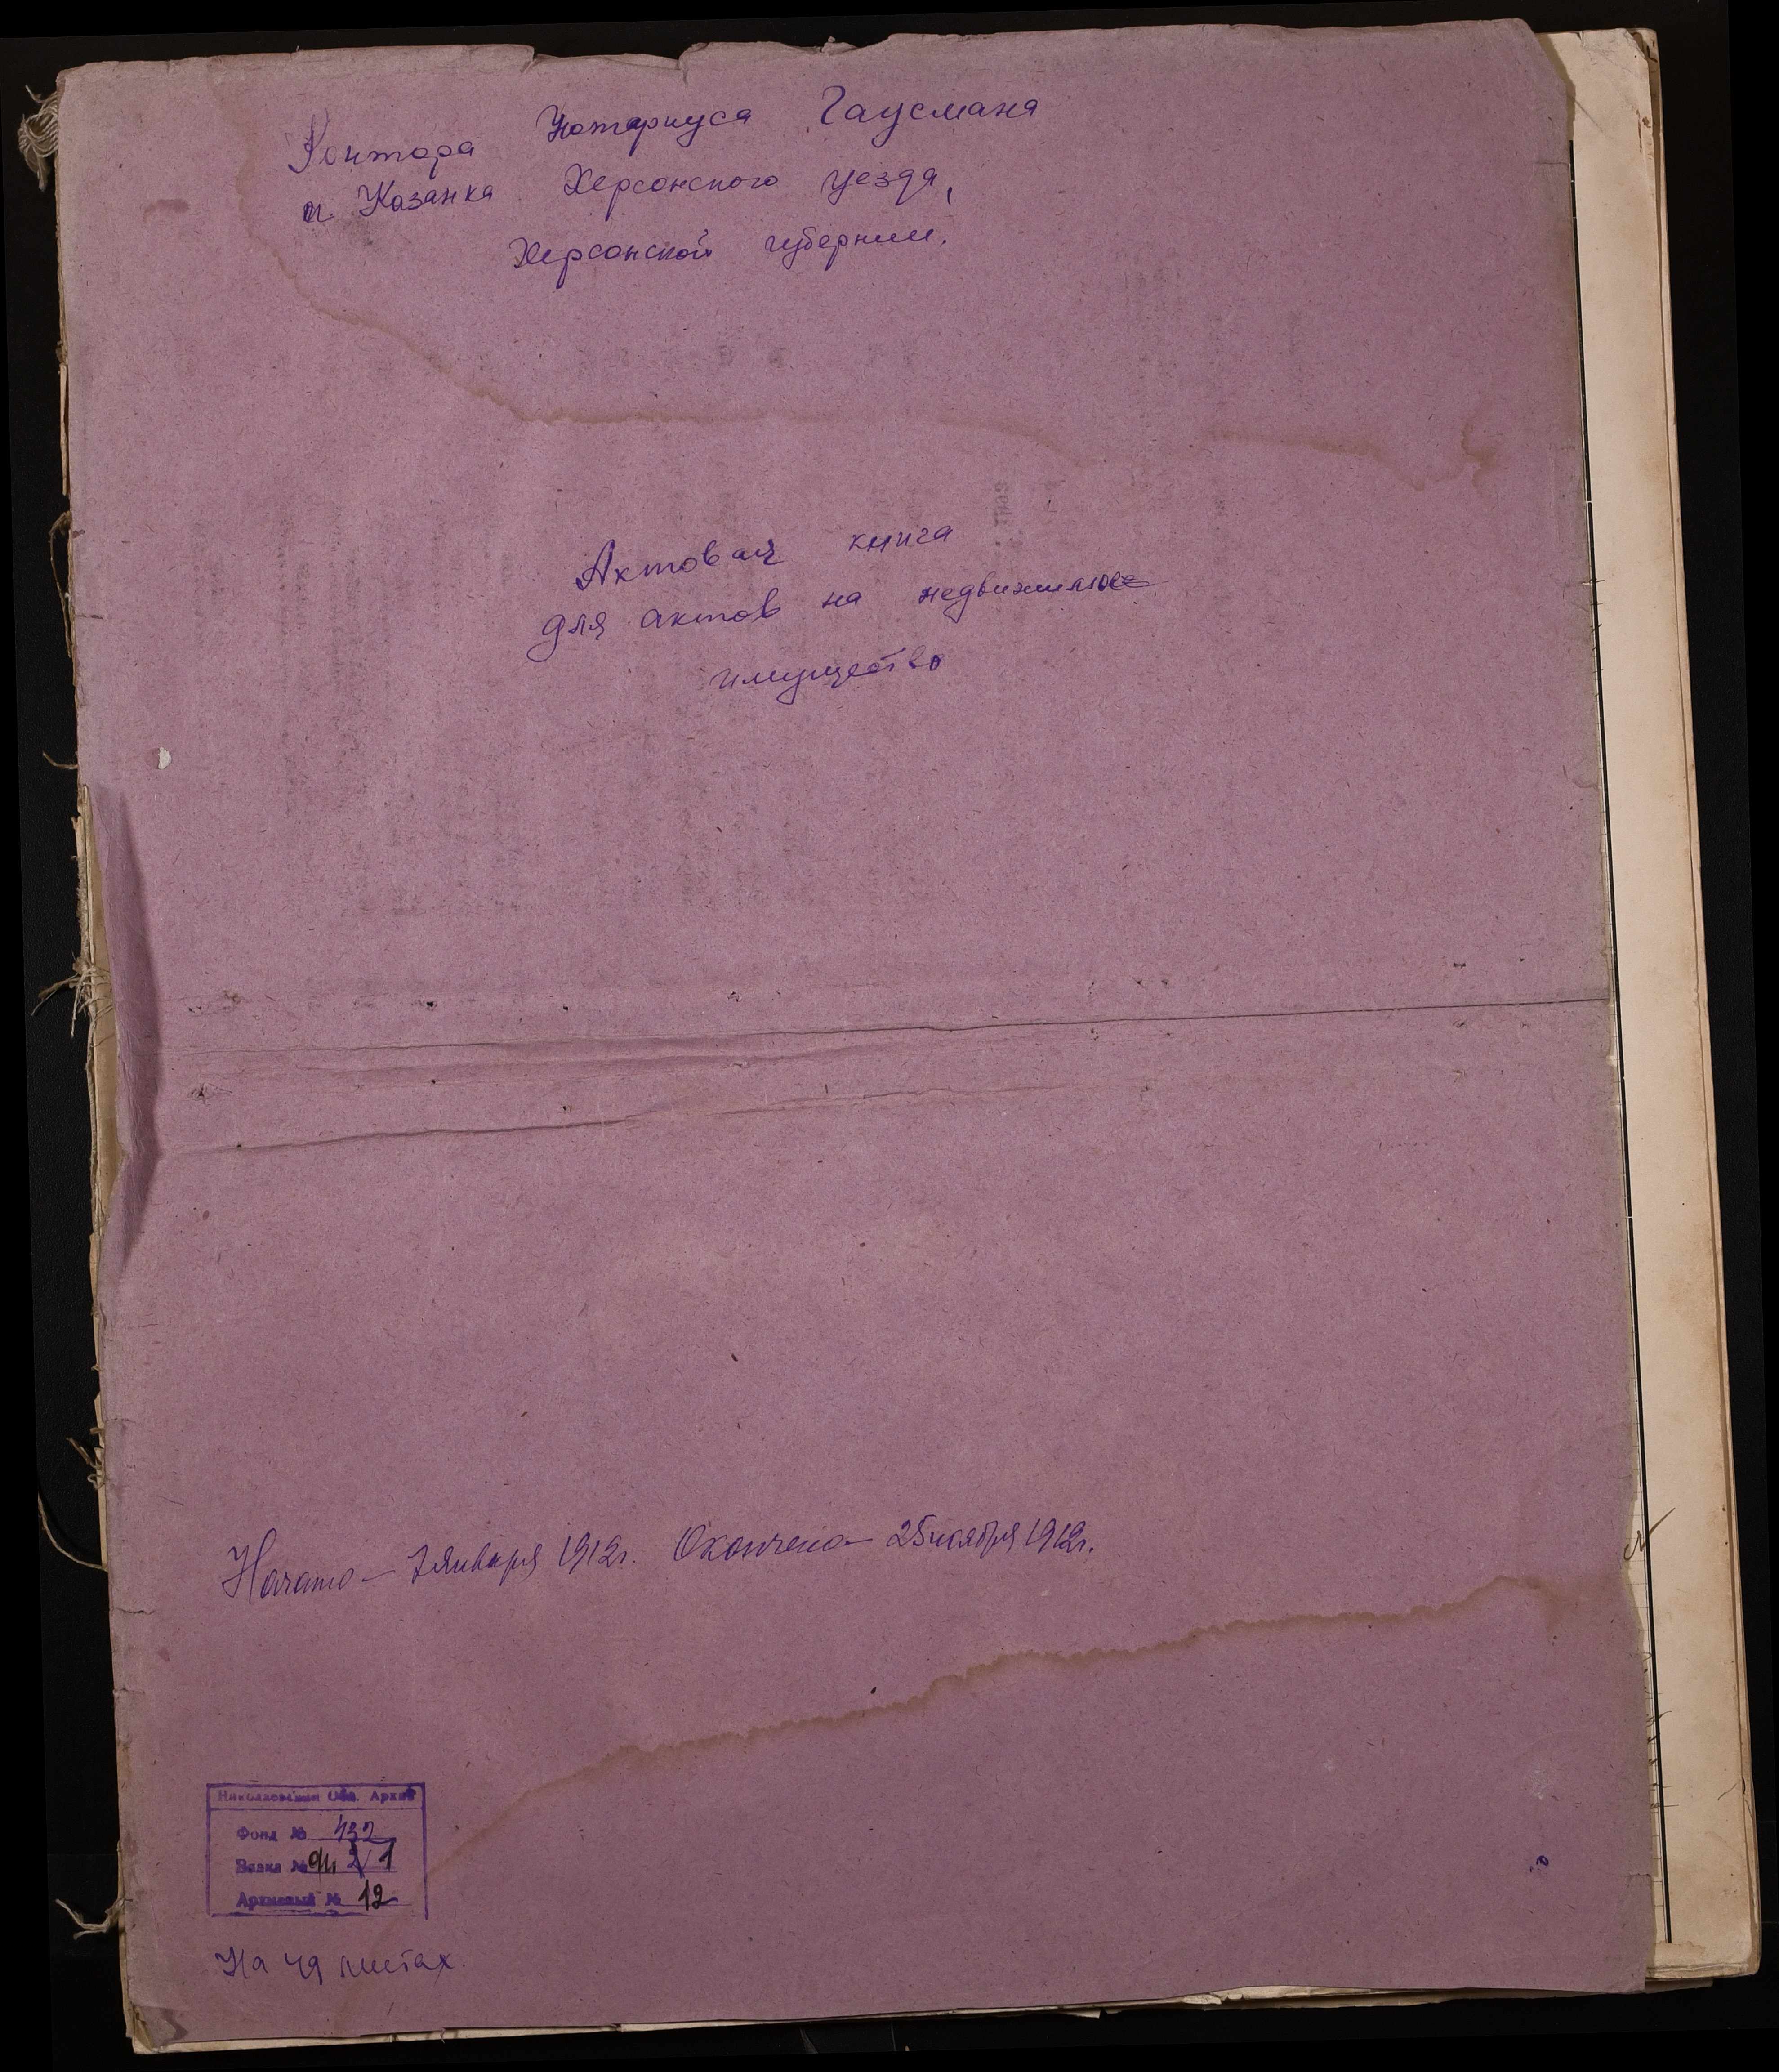 Контора Нотариуса Гаусмана
м. Казанка Херсонского уезда,
Херсонской губернии.
Актовая книга
для актов на недвижимое
имущество
Начато — 7 января 1912г. Окончено — 25 ноября 1912г.
Николаевский Обл. Архив
Фонд № 432
Вязка № оп 1
Архивный № 12
На 49 листах.